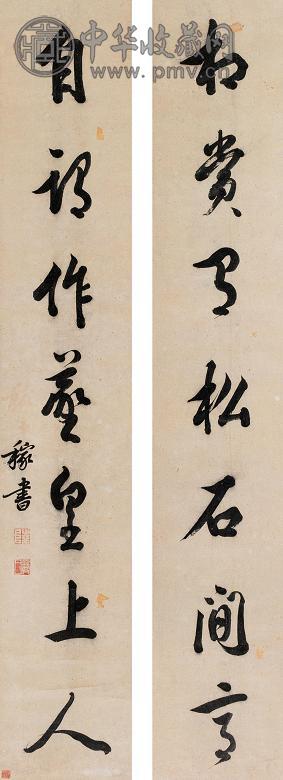 中华收藏网
www.pmv.cn
相賞有松石間意
自謂作羲皇上人
稼書